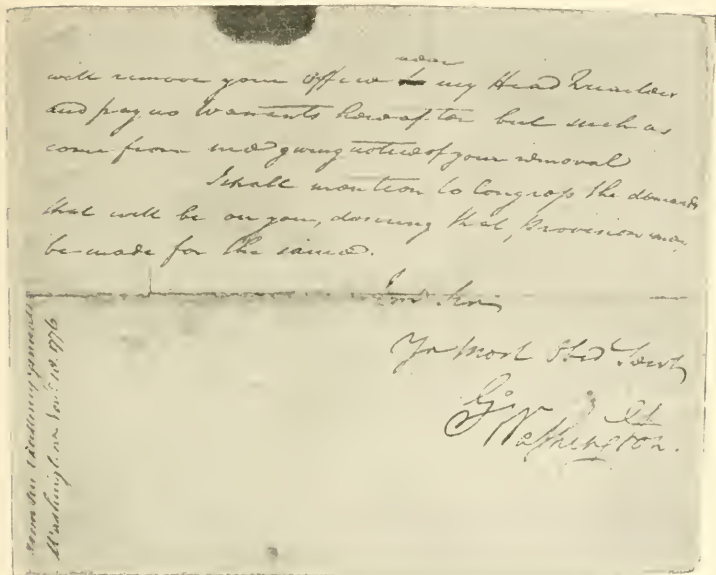 near
will remove your Office to my Head Quarters
and pay no Warrants hereafter but such as
come from me giving notice of your removal
I shall mention to Congress the demands
that will be on you, desiring that Provision may
be made for the same.
I am Sir
Yr most Obed Servt
Go Washington.
from his Excellency General
Washington Novr 1776